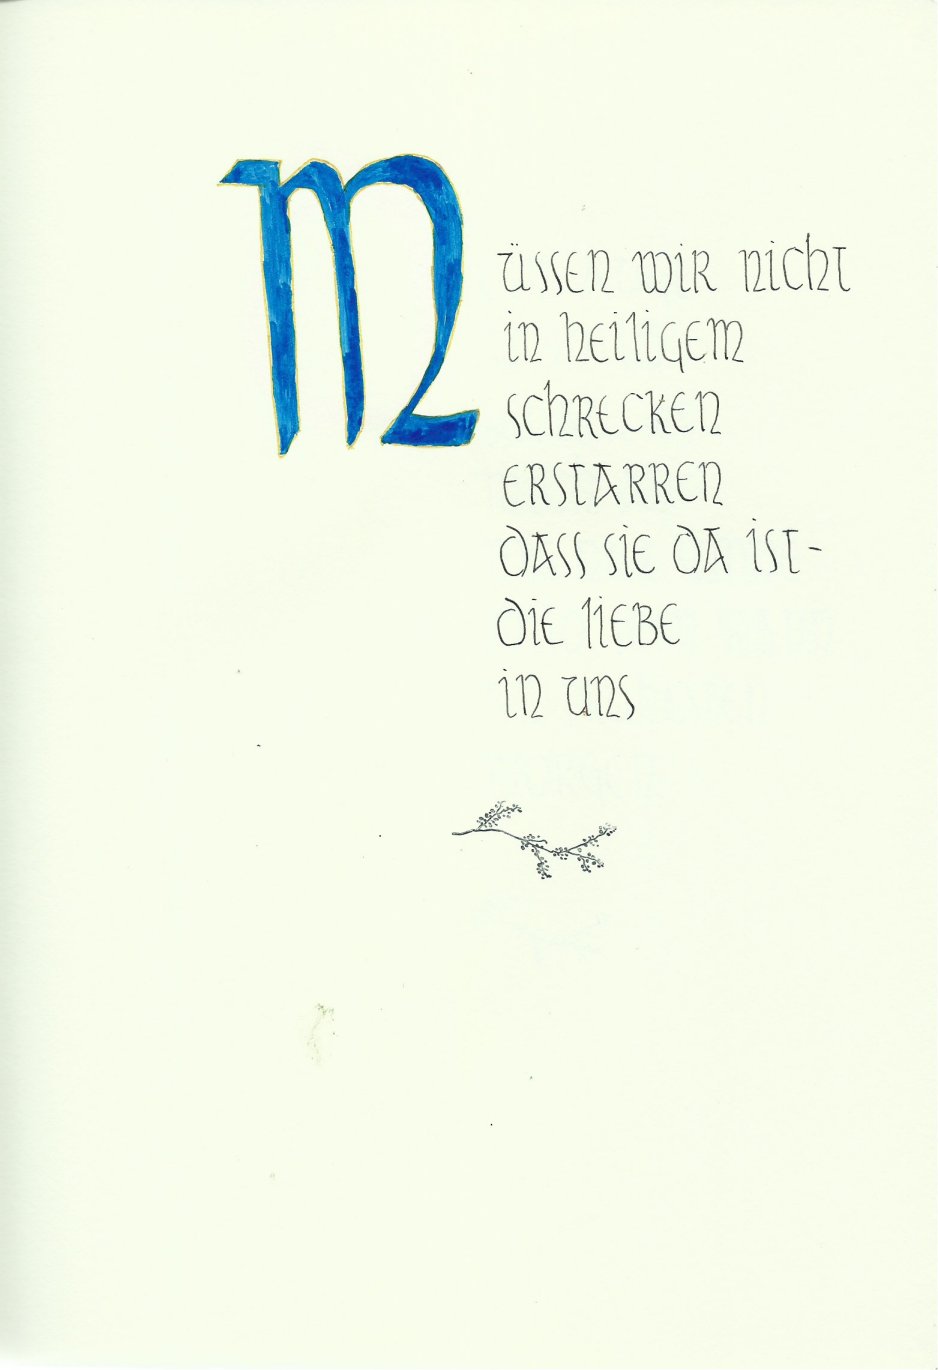 Müssen wir nicht
in heiligem
schrecken
erstarren
dass sie da ist-
die liebe
in uns